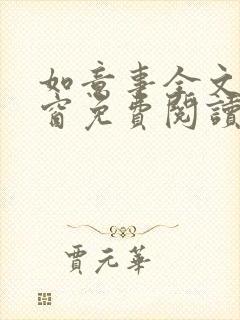 如意事全文
窗免費閱讀
賈元華